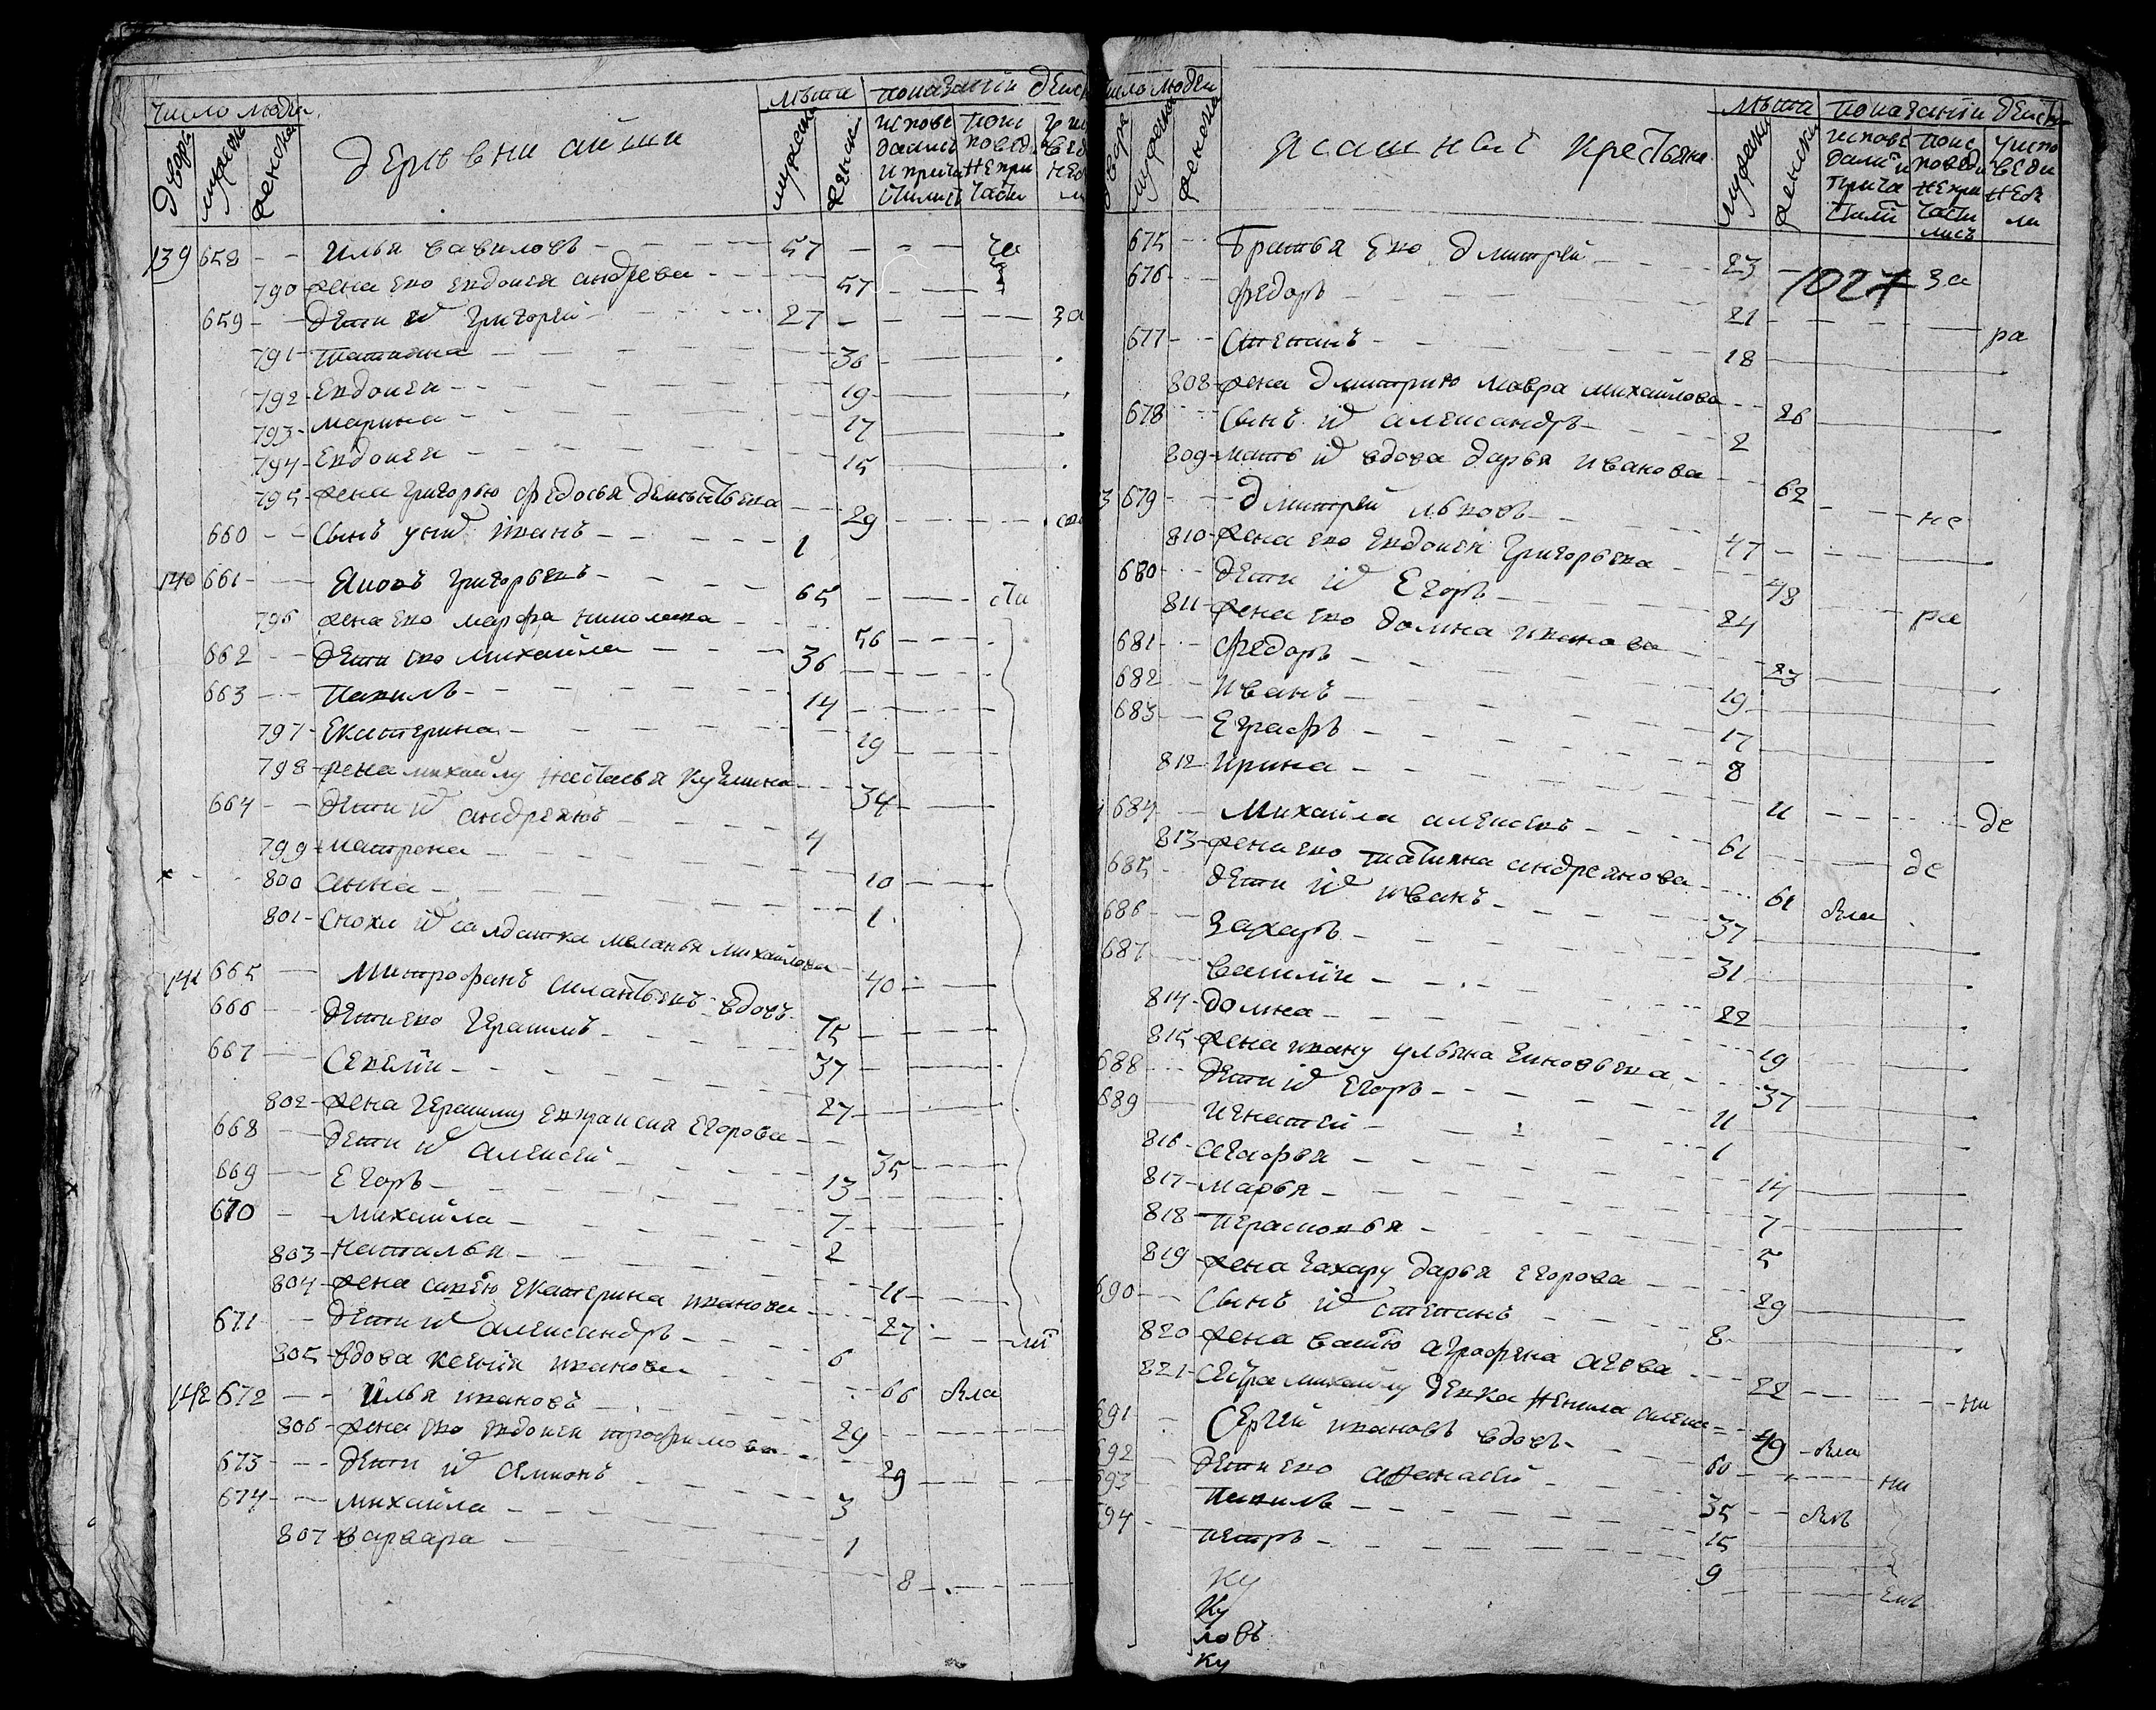 Число людеи
Дворы
мужеска
женска
Деревни аиши
лѣта
мужеска
женска
показаніи деист
испове
дались
и прича
стилис
поис
повед
не при
части
139 658 - - Илья вавиловъ - - - 57 - - -
790 жена ево евдокея андреева - - - 57 - - -
659 - - дети их Григореи - - - 27 - - - за
791 - татияна - - - 30 -
792 - Евдокея - - - 19 -
793 - марина - - - 17
794 - Евдокея - - - 15
795 - жена григорью федосья дементьева - - 29 - - -
660 - - Сынъ у них иванъ - - - 1
140 661 - - Яковъ григорьевъ - - - 65 - - - ста
796 жена ево марфа николаева - - - 56 - - -
662 - - дети ево михаила - - - 36 - - -
663 - - павилъ - - - 14 - - -
797 - Екатерина - - - 19 - - -
798 - жена михаилу настасья кузмина - - - 34 - - -
664 - - дети их андреянъ - - - 4
799 - матрена - - - 10
800 анна - - - 1
801 - Сноха их салдатка меланья михаилова - 40 - - -
141 665 - - Митрофанъ силантьевъ вдовъ - 75 - - -
666 - - дети ево герасимъ - - - 37 - - -
667 - - Савелии - - - 27 - - -
802 - жена герасиму евпраксия егорова - - 35 - - -
668 - - дети их алексеи - - - 13 - - -
669 - - Егоръ - - - 7 - - -
670 - - михаила - - - 2
803 - наталья - - - 11 - - -
804 - жена савелью екатерина иванова - - - 27 - - - ли
671 - - дети их александръ - - - 6
805 - вдова ксения иванова - - - 66 яла
142 672 - - Илья ивановъ - - - 29 - - -
806 - жена ево евдокея трофимова - - - 29 - - -
673 - - дети их семионъ - - - 3
674 - - михаила - - - 1
807 варвара - - - 8 - - -
число людеи
мужеска
женска
ясашныя крестьяня
лѣта
мужеска
женски
показаніи деист
испове
дали и
прича
стили
поис
повед
не при
части
лись
у испо
веди
не бы
ли
675 - - Братья ево дмитреи - - - 23 - 1027 за
676 - - федоръ - - - 21 - - - ра
677 - - Степанъ - - - 18
808 - жена дмитрию мавра михаилова - - 26
678 - - Сынъ их александръ - - - 2
809 - мать их вдова дарья иванова - - 62 - - - не
3 679 - - дмитреи львовъ - - - 47 - - -
810 - жена ево евдокея григорьева - - 48 - - - ра
680 - - дети их Егоръ - - - 24
811 - жена ево домна иванова - - 23
681 - - федоръ - - - 19
682 - - иванъ - - - 17
683 - - Еграфъ - - - 8
812 - ирина - - - 11 - - - де
684 - - Михаила алексеевъ - - - 61 - - - де
813 - жена ево татияна андреянова - - 61 яла
685 - - дети их иванъ - - - 37
686 - - Захаръ - - - 31
687 - - василии - - - 22
814 - домна - - - 19
815 - жена ивану ульяна
688 - - дети их егоръ - - - 11
689 - - игнатеи - - - 1
816 - агафья - - - 14
817 - марья - - - 7
818 - парасковья - - - 5
819 - жена захару дарья егорова - - 29
690 - - сынъ их степанъ - - - 8
820 - жена васию аграфена - - - 22 - - - ни
821 - сестра михаилу девка ненила алекси= 49 - яла
691 - Сергеи ивановъ вдовъ - - - 60 - - - ни
692 дети ево афанасеи - - - 35 - - яла
693 павилъ - - - 15
694 петръ - - - 9
ку
ку
ловъ
ку